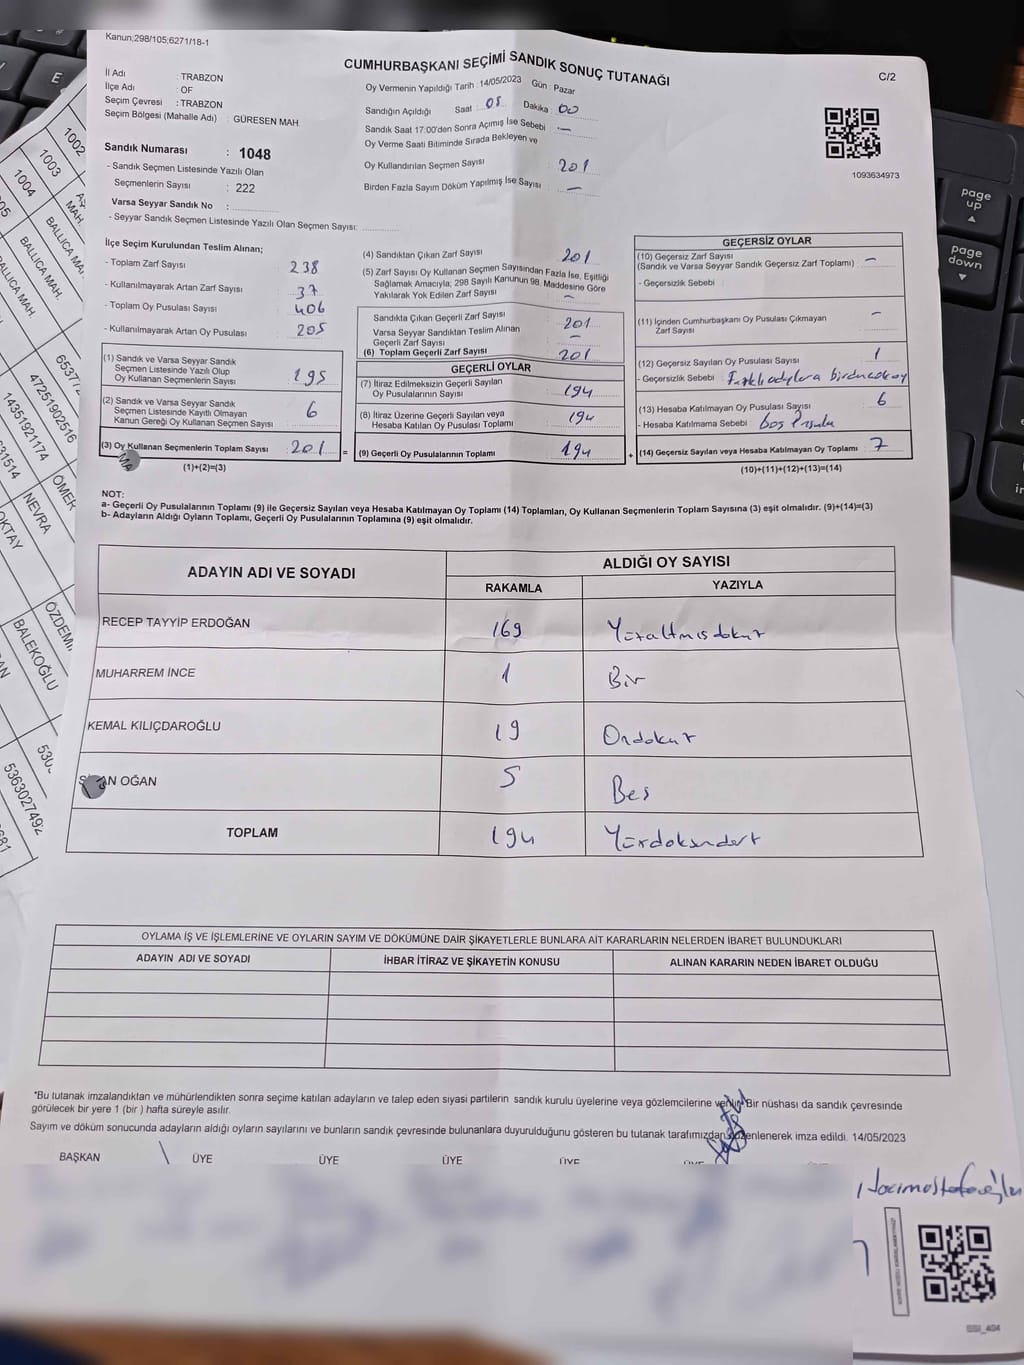 Kanun;298/105;6271/18-1
CUMHURBAŞKANI SEÇİMİ SANDIK SONUÇ TUTANAĞI
C/2
İl Adı : TRABZON
İlçe Adı : OF
Seçim Çevresi : TRABZON
Seçim Bölgesi (Mahalle Adı) : GÜRESEN MAH
Sandık Numarası : 1048
- Sandık Seçmen Listesinde Yazılı Olan
Seçmenlerin Sayısı : 222
Varsa Seyyar Sandık No :
- Seyyar Sandık Seçmen Listesinde Yazılı Olan Seçmen Sayısı:
Oy Vermenin Yapıldığı Tarih :14/05/2023 Gün : Pazar
Sandığın Açıldığı Saat 08 Dakika : 00
Sandık Saat 17:00'den Sonra Açımış İse Sebebi : —
Oy Verme Saati Bitiminde Sırada Bekleyen ve
Oy Kullandırılan Seçmen Sayısı : 201
Birden Fazla Sayım Döküm Yapılmış İse Sayısı : —
1093634973
İlçe Seçim Kurulundan Teslim Alınan;
- Toplam Zarf Sayısı : 238
- Kullanılmayarak Artan Zarf Sayısı : 37
- Toplam Oy Pusulası Sayısı : 406
- Kullanılmayarak Artan Oy Pusulası : 205
(1) Sandık ve Varsa Seyyar Sandık
Seçmen Listesinde Yazılı Olup
Oy Kullanan Seçmenlerin Sayısı : 195
(2) Sandık ve Varsa Seyyar Sandık
Seçmen Listesinde Kayıtlı Olmayan
Kanun Gereği Oy Kullanan Seçmen Sayısı : 6
(3) Oy Kullanan Seçmenlerin Toplam Sayısı : 201 =
(1)+(2)=(3)
(4) Sandıktan Çıkan Zarf Sayısı : 201
(5) Zarf Sayısı Oy Kullanan Seçmen Sayısından Fazla İse, Eşitliği
Sağlamak Amacıyla; 298 Sayılı Kanunun 98. Maddesine Göre
Yakılarak Yok Edilen Zarf Sayısı : —
Sandıkta Çıkan Geçerli Zarf Sayısı : 201
Varsa Seyyar Sandıktan Teslim Alınan
Geçerli Zarf Sayısı : —
(6) Toplam Geçerli Zarf Sayısı : 201
GEÇERLİ OYLAR
(7) İtiraz Edilmeksizin Geçerli Sayılan
Oy Pusulalarının Sayısı : 194
(8) İtiraz Üzerine Geçerli Sayılan veya
Hesaba Katılan Oy Pusulalarının Toplamı : 194
(9) Geçerli Oy Pusulalarının Toplamı : 194 +
GEÇERSİZ OYLAR
(10) Geçersiz Zarf Sayısı
(Sandık ve Varsa Seyyar Sandık Geçersiz Zarf Toplamı) : —
- Geçersizlik Sebebi :
(11) İçinden Cumhurbaşkanı Oy Pusulası Çıkmayan
Zarf Sayısı : —
(12) Geçersiz Sayılan Oy Pusulası Sayısı : 1
- Geçersizlik Sebebi : Farklı adaylara birden çok oy
(13) Hesaba Katılmayan Oy Pusulası Sayısı : 6
- Hesaba Katılmama Sebebi : Boş Pusula
(14) Geçersiz Sayılan veya Hesaba Katılmayan Oy Toplamı : 7
(10)+(11)+(12)+(13)=(14)
NOT:
a- Geçerli Oy Pusulalarının Toplamı (9) ile Geçersiz Sayılan veya Hesaba Katılmayan Oy Toplamı (14) Toplamları, Oy Kullanan Seçmenlerin Toplam Sayısına (3) eşit olmalıdır. (9)+(14)=(3)
b- Adayların Aldığı Oyların Toplamı, Geçerli Oy Pusulalarının Toplamına (9) eşit olmalıdır.
ADAYIN ADI VE SOYADI ALDIĞI OY SAYISI
RAKAMLA YAZIYLA
RECEP TAYYİP ERDOĞAN 169 Yüzaltmışdokuz
MUHARREM İNCE 1 Bir
KEMAL KILIÇDAROĞLU 19 Ondokuz
OĞAN 5 Beş
TOPLAM 194 Yüzdoksandört
OYLAMA İŞ VE İŞLEMLERİNE VE OYLARIN SAYIM VE DÖKÜMÜNE DAİR ŞİKAYETLERLE BUNLARA AİT KARARLARIN NELERDEN İBARET BULUNDUKLARI
ADAYIN ADI VE SOYADI İHBAR İTİRAZ VE ŞİKAYETİN KONUSU ALINAN KARARIN NEDEN İBARET OLDUĞU
*Bu tutanak imzalandıktan ve mühürlendikten sonra seçime katılan adayların ve talep eden siyasi partilerin sandık kurulu üyelerine veya gözlemcilerine verilir. Bir nüshası da sandık çevresinde
görülecek bir yere 1 (bir ) hafta süreyle asılır.
Sayım ve döküm sonucunda adayların aldığı oyların sayılarını ve bunların sandık çevresinde bulunanlara duyurulduğunu gösteren bu tutanak tarafımızdan düzenlenerek imza edildi. 14/05/2023
BAŞKAN ÜYE ÜYE ÜYE ÜYE
1002
1003
1004
BALLICA MAH.
BALLICA MAH.
47251902516
14351921174
ÖMER
NEVRA
OKTAY
BALEKOĞLU
5363027492
E
page up
page down